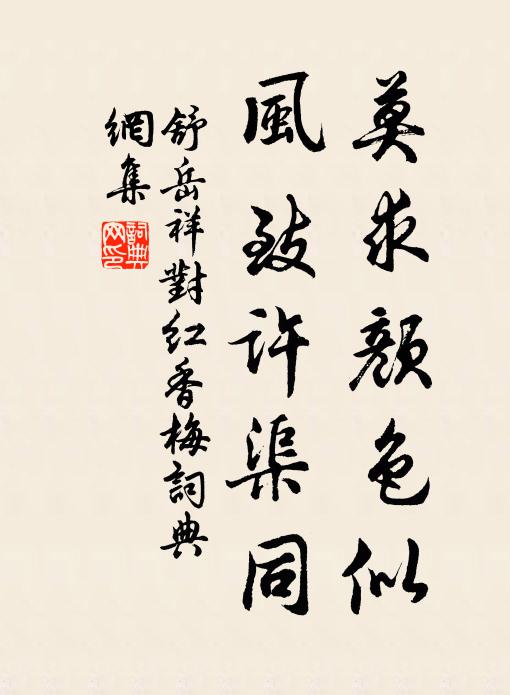 莫求顏色似
風致許渠同
舒岳祥對红香梅詞典
網集
詞典
网印